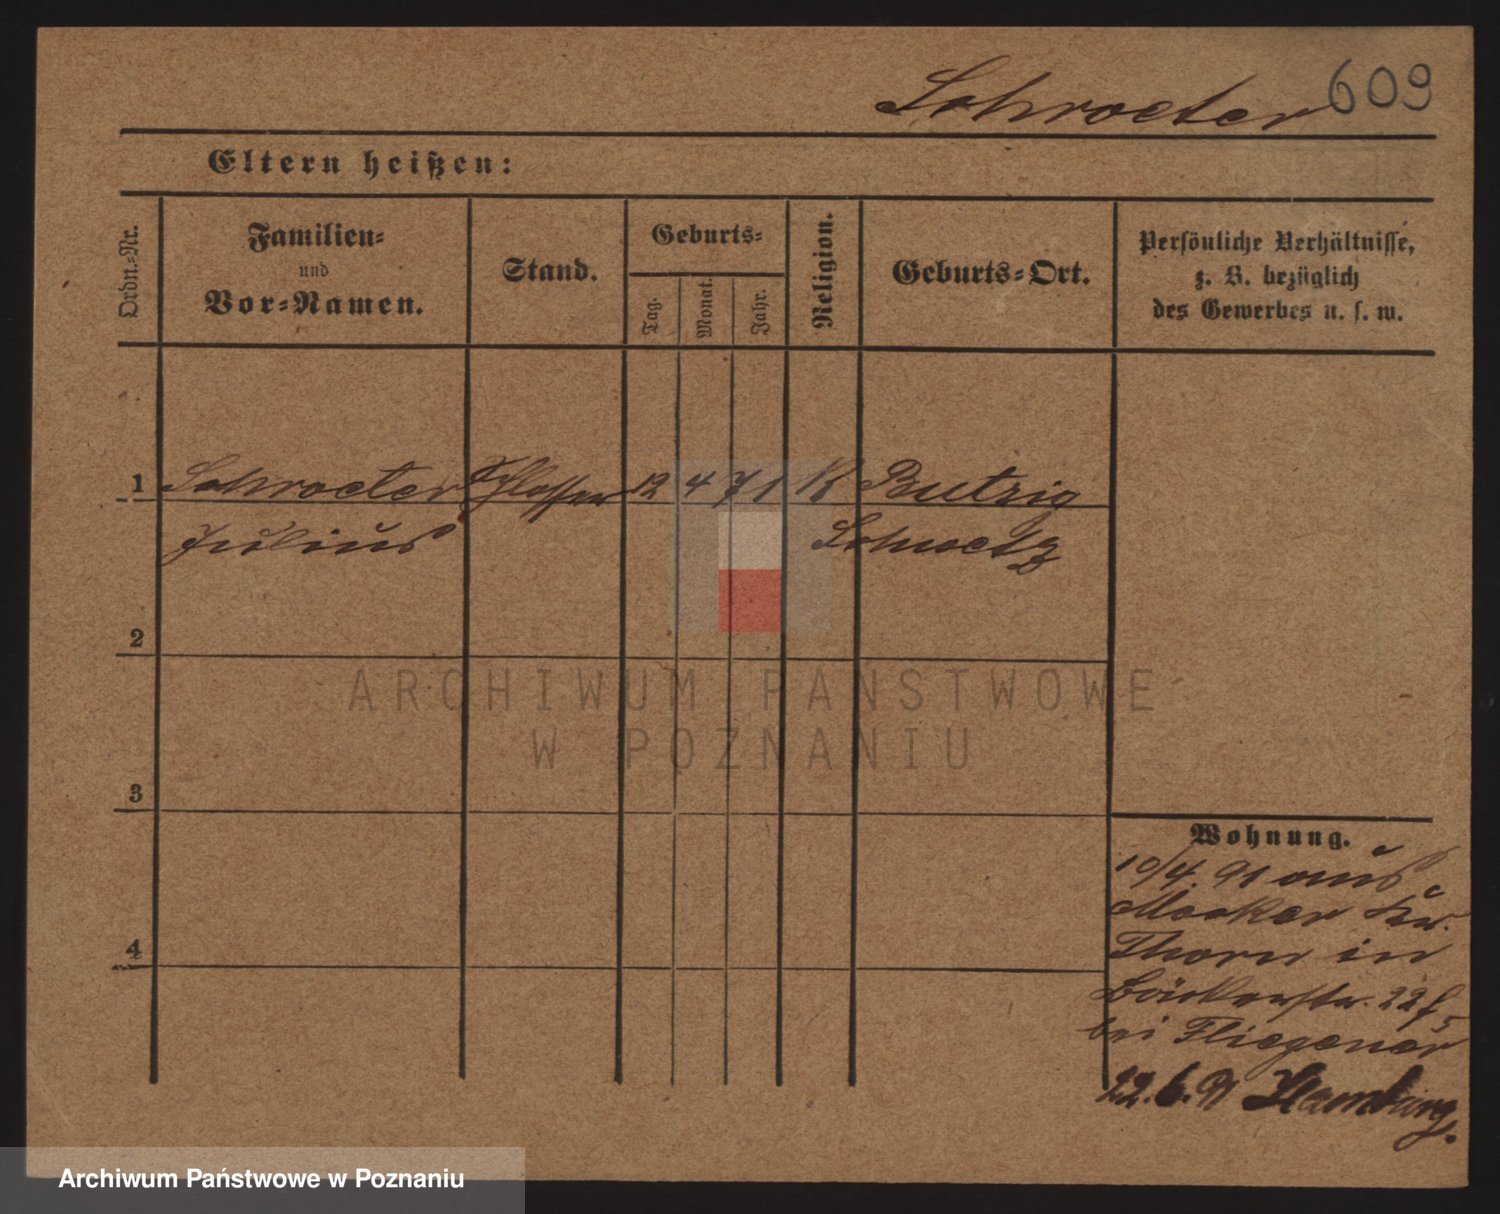 Schroeter 609
Eltern heißen:
Ordn.-Nr.
Familien-
und
Vor-Namen.
Stand.
Geburts-
Tag.
Monat.
Jahr.
Religion.
Geburts-Ort.
Persönliche Verhältnisse,
z. B. bezüglich
des Gewerbes u. s. w.
1 Schroeter Schlosser 12 4 71 K Butzig
Julius
2
3
4
Wohnung.
10/4. 91 aus
Mocker Kr.
Thorn in
Bäckerstr. 22
bei Fliegener
22.6.91 Hamburg.
ARCHIWUM PAŃSTWOWE
W POZNANIU
Archiwum Państwowe w Poznaniu